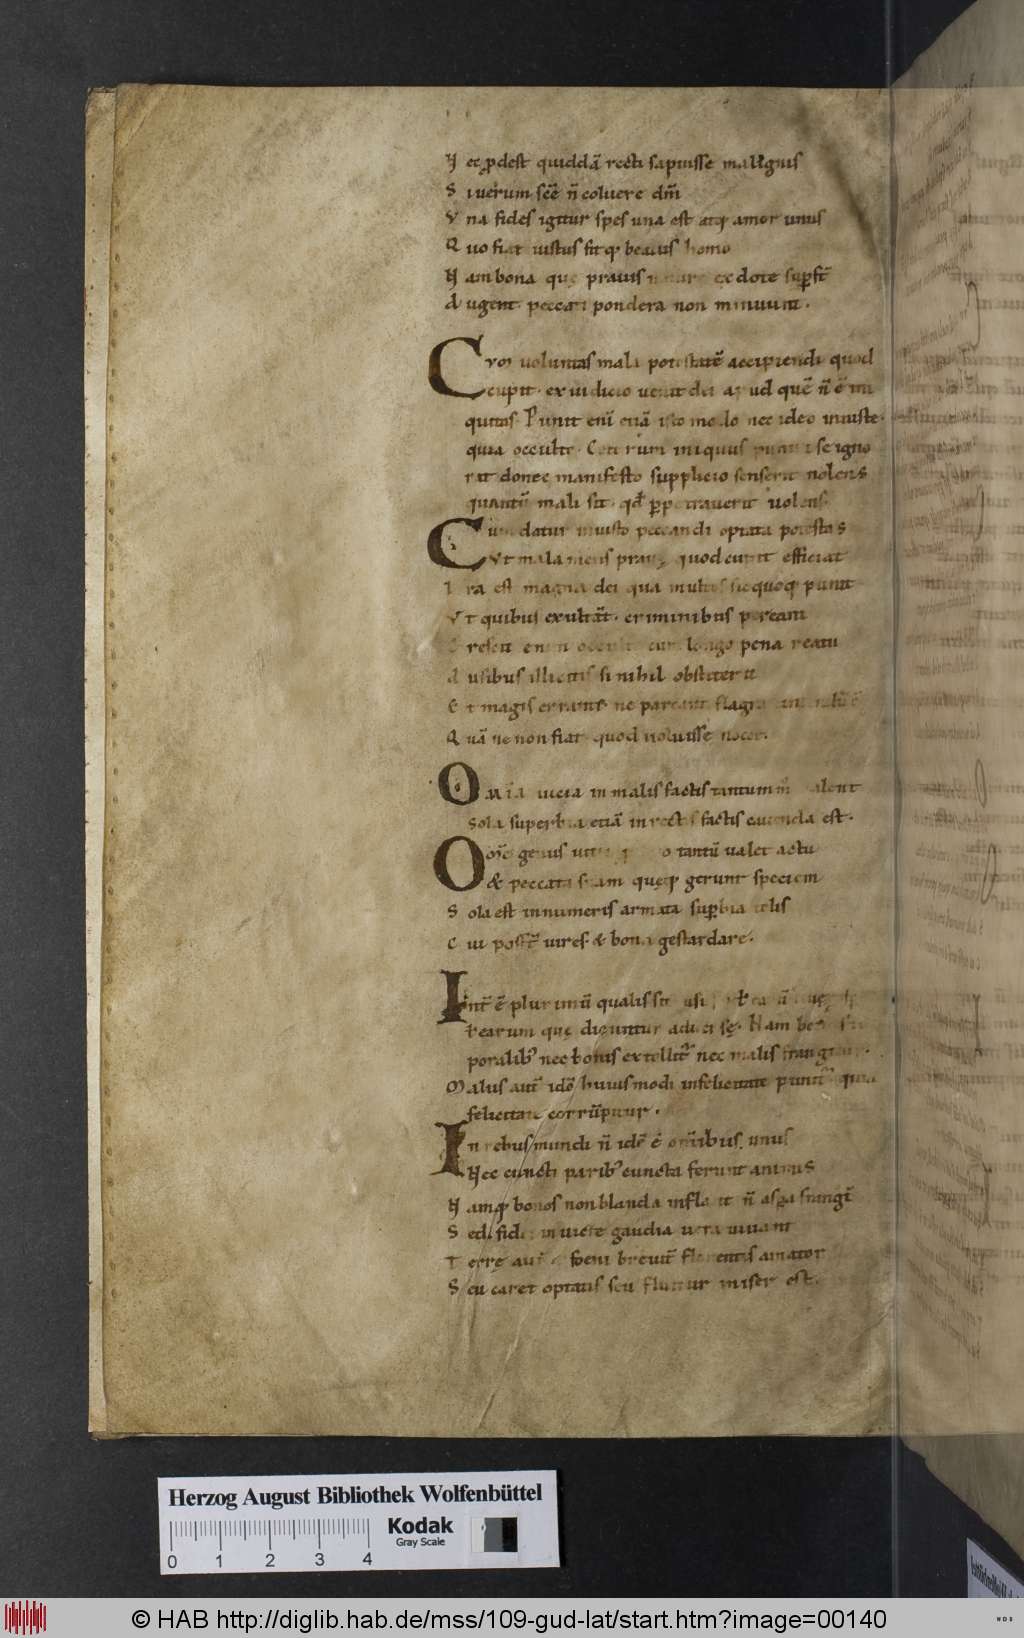 H ec ꝓdest quiddā recti sapuisse malignis
S i uerum scīē n̄ coluere dm̄
V na fides igitur spes una est atq; amor unus
Q uo fiat iustus fitq; beatus homo
N am bona quę prauis ex dote suꝑst̄
A ugent peccati pondera non minuunt.
Cvoi uoluntas mali potestatē accipiendi quod
cupit. ex iudicio uenit dei apud quē n̄ ē ini
quitas. Punit enī etiā isto modo nec ideo iniuste.
quia occulte. Ceterum iniquus puniri se igno
rat donec manifesto supplicio senserit nolens
quantū mali sit. qd ꝑpetrauerit uolens.
Cum datur iniusto peccandi optata potestas
Vt mala mens prauę quod cupit efficiat
I ra est magna dei qua multos sic quoq; punit
V t quibus exultāt. criminibus pereant
C rescit enim occulte cum longo pena reatu
A usibus illicitis si nihil obstiterit
E t magis errant. ne parcant flagra
Q uā ne non fiat. quod uoluisse nocet.
Omīa uicia in malis factis tantum m̄ ualent
Sola superbia etiā in rectis factis cauenda est.
Om̄e genus tantū ualet actu
& peccata suam quęq; gerunt speciem
S ola est innumeris armata suꝑbia telis
C ui possēt uires & bona gestardare.
Int̄ ē plurimū qualis sit usi
rearum quę dicuntur aduersę. Nam bonus
poralib; nec bonis extollit̄ nec malis frangitur.
Malus aut̄ ideo huiusmodi infelicitate punit̄ quia
felicitate corrūpitur.
In rebus mundi n̄ idē ē om̄ibus unus
Nec cuncti parib; cuncta ferunt animis
N amq; bonos non blanda inflant n̄ aspa frangūt
S ed fidei inuicte gaudia uera iuuant
T erre aut̄ foeni breuit̄ florentis amator
S eu caret optatis seu fluitur miser est.
Herzog August Bibliothek Wolfenbüttel
Kodak
Gray Scale
0 1 2 3 4
© HAB http://diglib.hab.de/mss/109-gud-lat/start.htm?image=00140
WDB